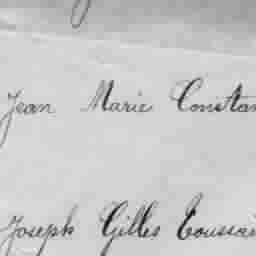 Jean Marie Constan
Joseph Gilles Toussai